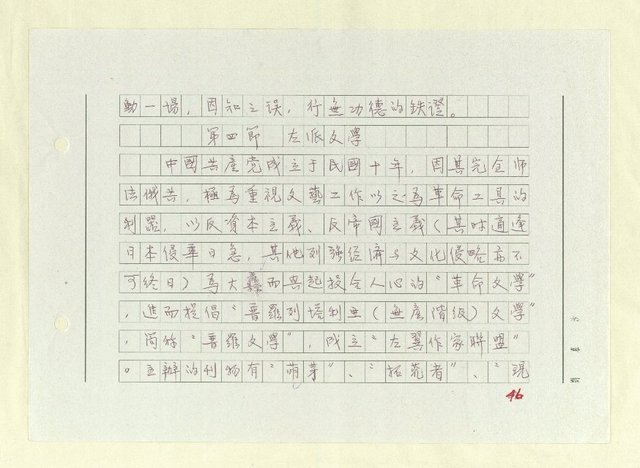 動一場，因知之誤，行無功德的鉄證。
第四節　左派文學
中國共產党成立于民國十年，因其完全师
法俄共，極為重視文藝工作以之為革命工具的
利器，以反資本主義、反帝國主義（其时適逢
日本侵華日急，其他列強經濟与文化侵略亦不
可終日）為大纛而興起投合人心的“革命文學”
，進而提倡“普羅列塔利亜（無產階級）文學”
，简称“普羅文學”，成立“左翼作家聯盟”
。主辦的刊物有“萌芽”、“拓荒者”、“現
46